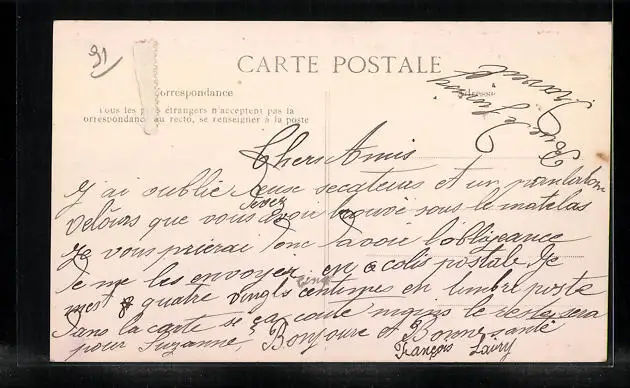 91
CARTE POSTALE
Correspondance
Adresse
Tous les pays étrangers n'acceptent pas la
correspondance au recto, se renseigner à la poste
Chers Amis
J'ai oublié deux secateurs et un pantalon
velours que vous devez avoir trouvé sous le matelas
Je vous prierai donc d'avoir l'oblijeance
de me les envoyer en colis postale Je
mes quatre vingts cinq centimes en timbre poste
Dans la carte si ça coute moins le reste sera
pour Suzanne Bonjoure et Bonne santé
François